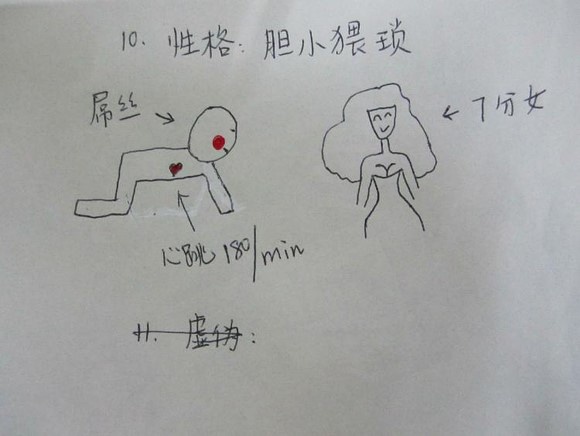 10. 性格: 胆小猥琐
屌丝
7分女
心跳180/min
11. 虚伪: